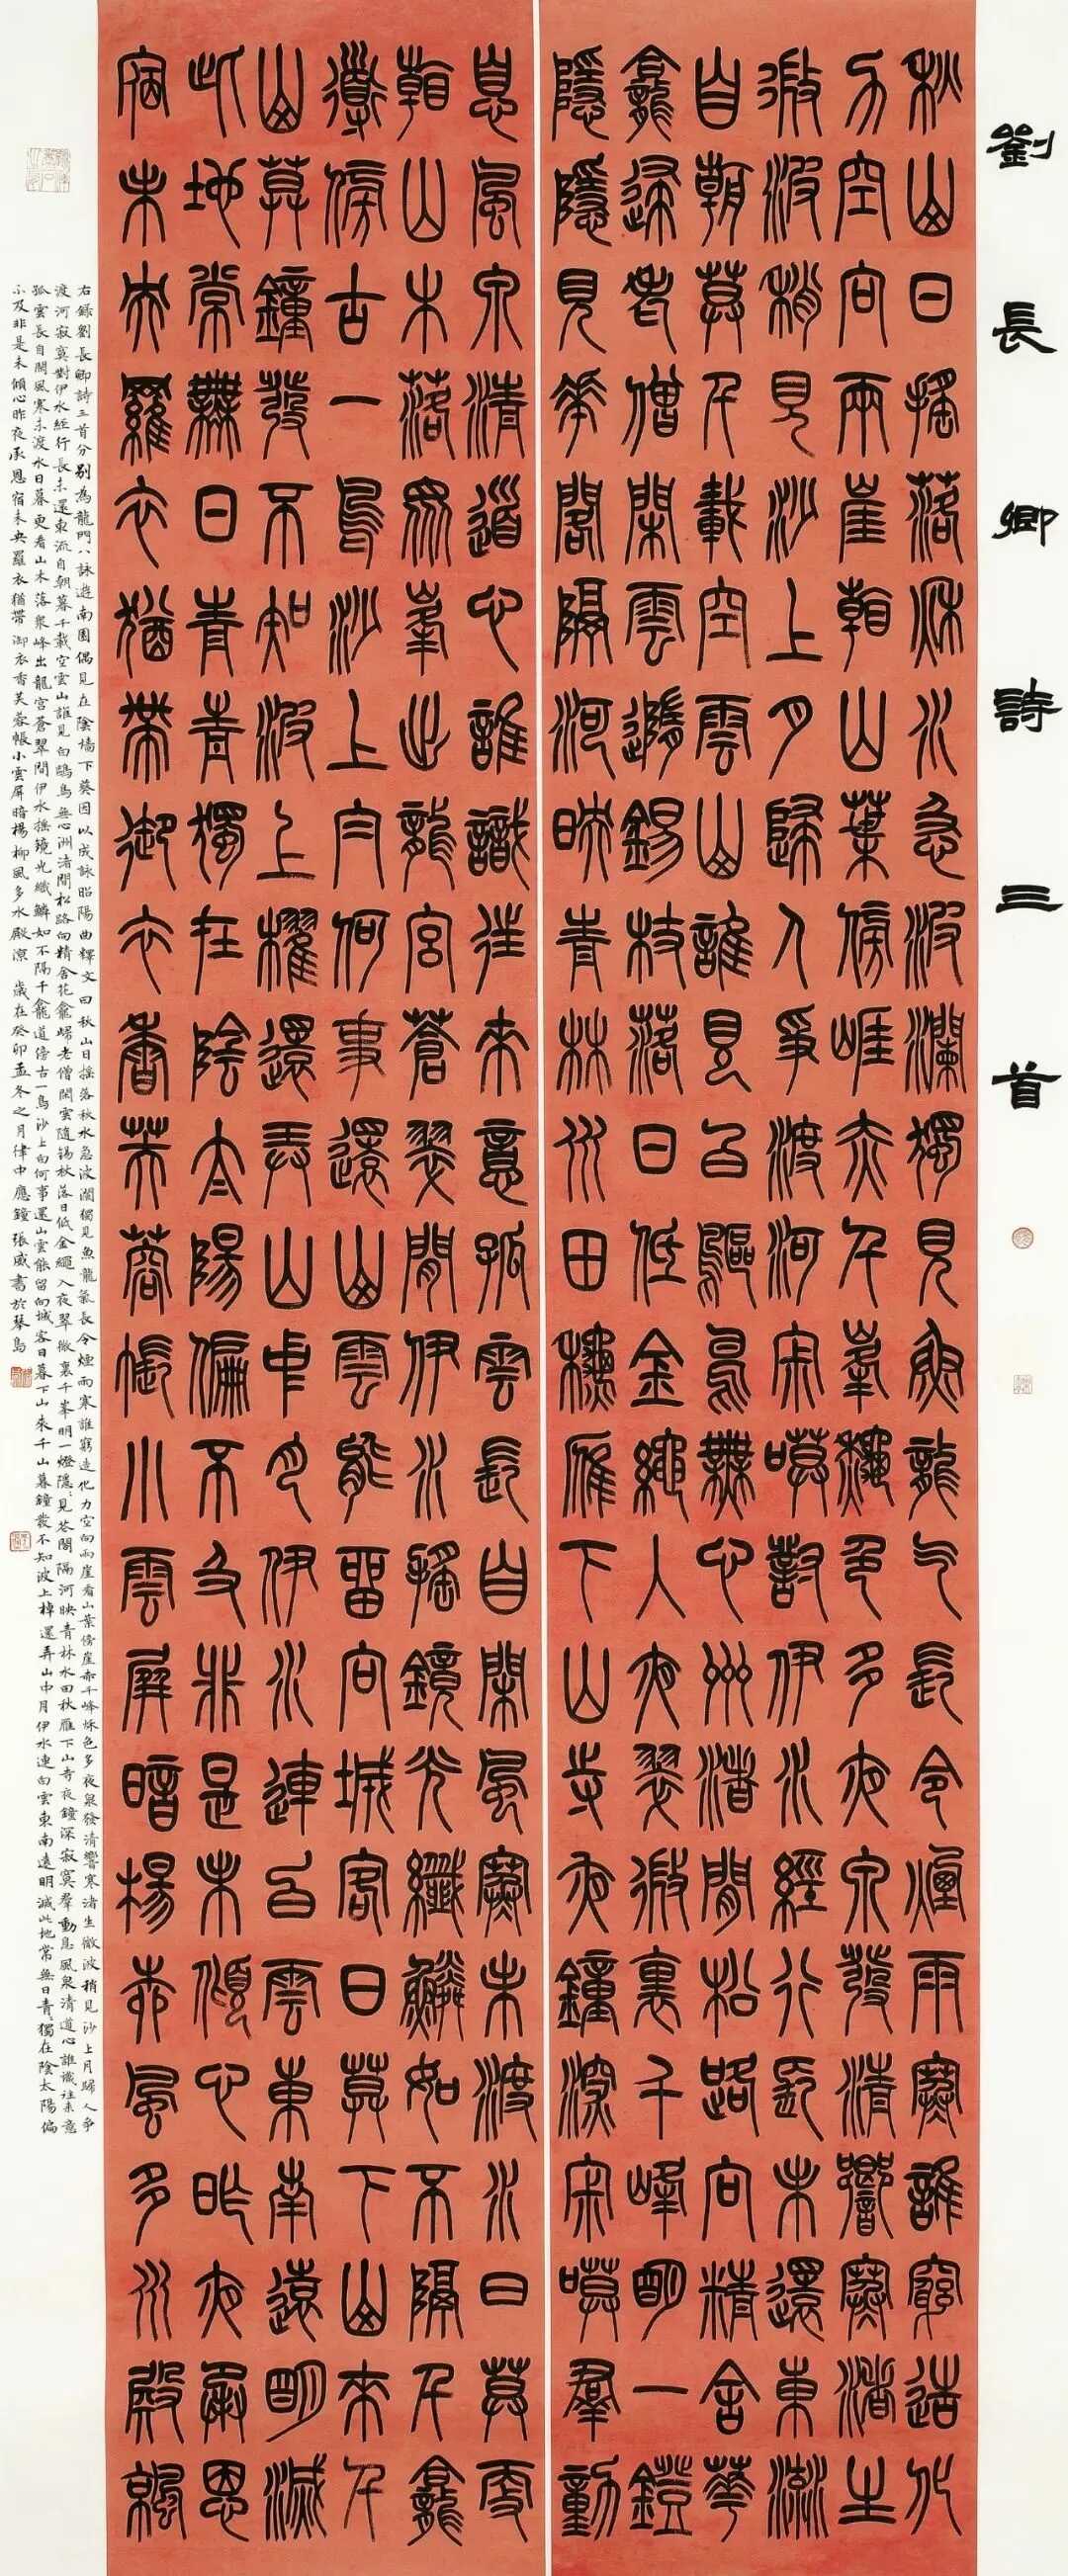 劉長卿詩三首
秋山日搖落秌水急波瀾獨見魚龍气長令煙雨寒誰窮造化
力空向兩崖看山葉傍崖赤千峯穐色多夜泉發清響寒渚生
微波稍見沙上月歸人爭渡河寂寞對伊水經行長未還東流
自朝莫千載空雲山誰見白鷗鳥無心洲渚間松路向精舍華
龕歸老僧閑雲隨錫杖落日低金繩入夜翠微裏千峰明一鐙
隱隱見花閣隔河映青林水田穐雁下山寺夜鐘深寂寞羣動
息風泉清道心誰識往來意孤雲長自閑風寒未渡水日莫更
看山木落眾峯出龍宮蒼翠間伊水搖鏡光纖鱗如不隔千龕
道傍古一鳥沙上白何事還山雲能留向城客日莫下山來千
山莫鐘發不知波上櫂還弄山中月伊水連白雲東南遠明滅
此地常無日青青獨在陰太陽偏不及非是未傾心昨夜承恩
宿未央羅衣猶帶御衣香芙蓉帳小雲屏暗楊柳風多水殿涼
右錄劉長卿詩三首分別為龍門八詠遊南園偶見在陰墻下葵因以成詠昭陽曲釋文曰秋山日搖落秋水急波瀾獨見魚龍氣長令煙雨寒誰窮造化力空向兩崖看山葉傍崖赤千峰秌色多夜泉發清響寒渚生微波稍見沙上月歸人爭
渡河寂寞對伊水經行長未還東流自朝暮千載空雲山誰見白鷗鳥無心洲渚間松路向精舍花龕歸老僧閑雲隨錫杖落日低金繩入夜翠微裏千峯明一燈隱隱見花閣隔河映青林水田秋雁下山寺夜鐘深寂寞羣動息風泉清道心誰識往來意
孤雲長自閑風寒未渡水日暮更看山木落眾峰出龍宮蒼翠間伊水搖鏡光纖鱗如不隔千龕道傍古一鳥沙上白何事還山雲能留向城客日暮下山來千山暮鐘發不知波上棹還弄山中月伊水連白雲東南遠明滅此地常無日青青獨在陰太陽偏
不及非是未傾心昨夜承恩宿未央羅衣猶帶御衣香芙蓉帳小雲屏暗楊柳風多水殿涼 歲在癸卯孟冬之月律中應鐘張威書於琴島